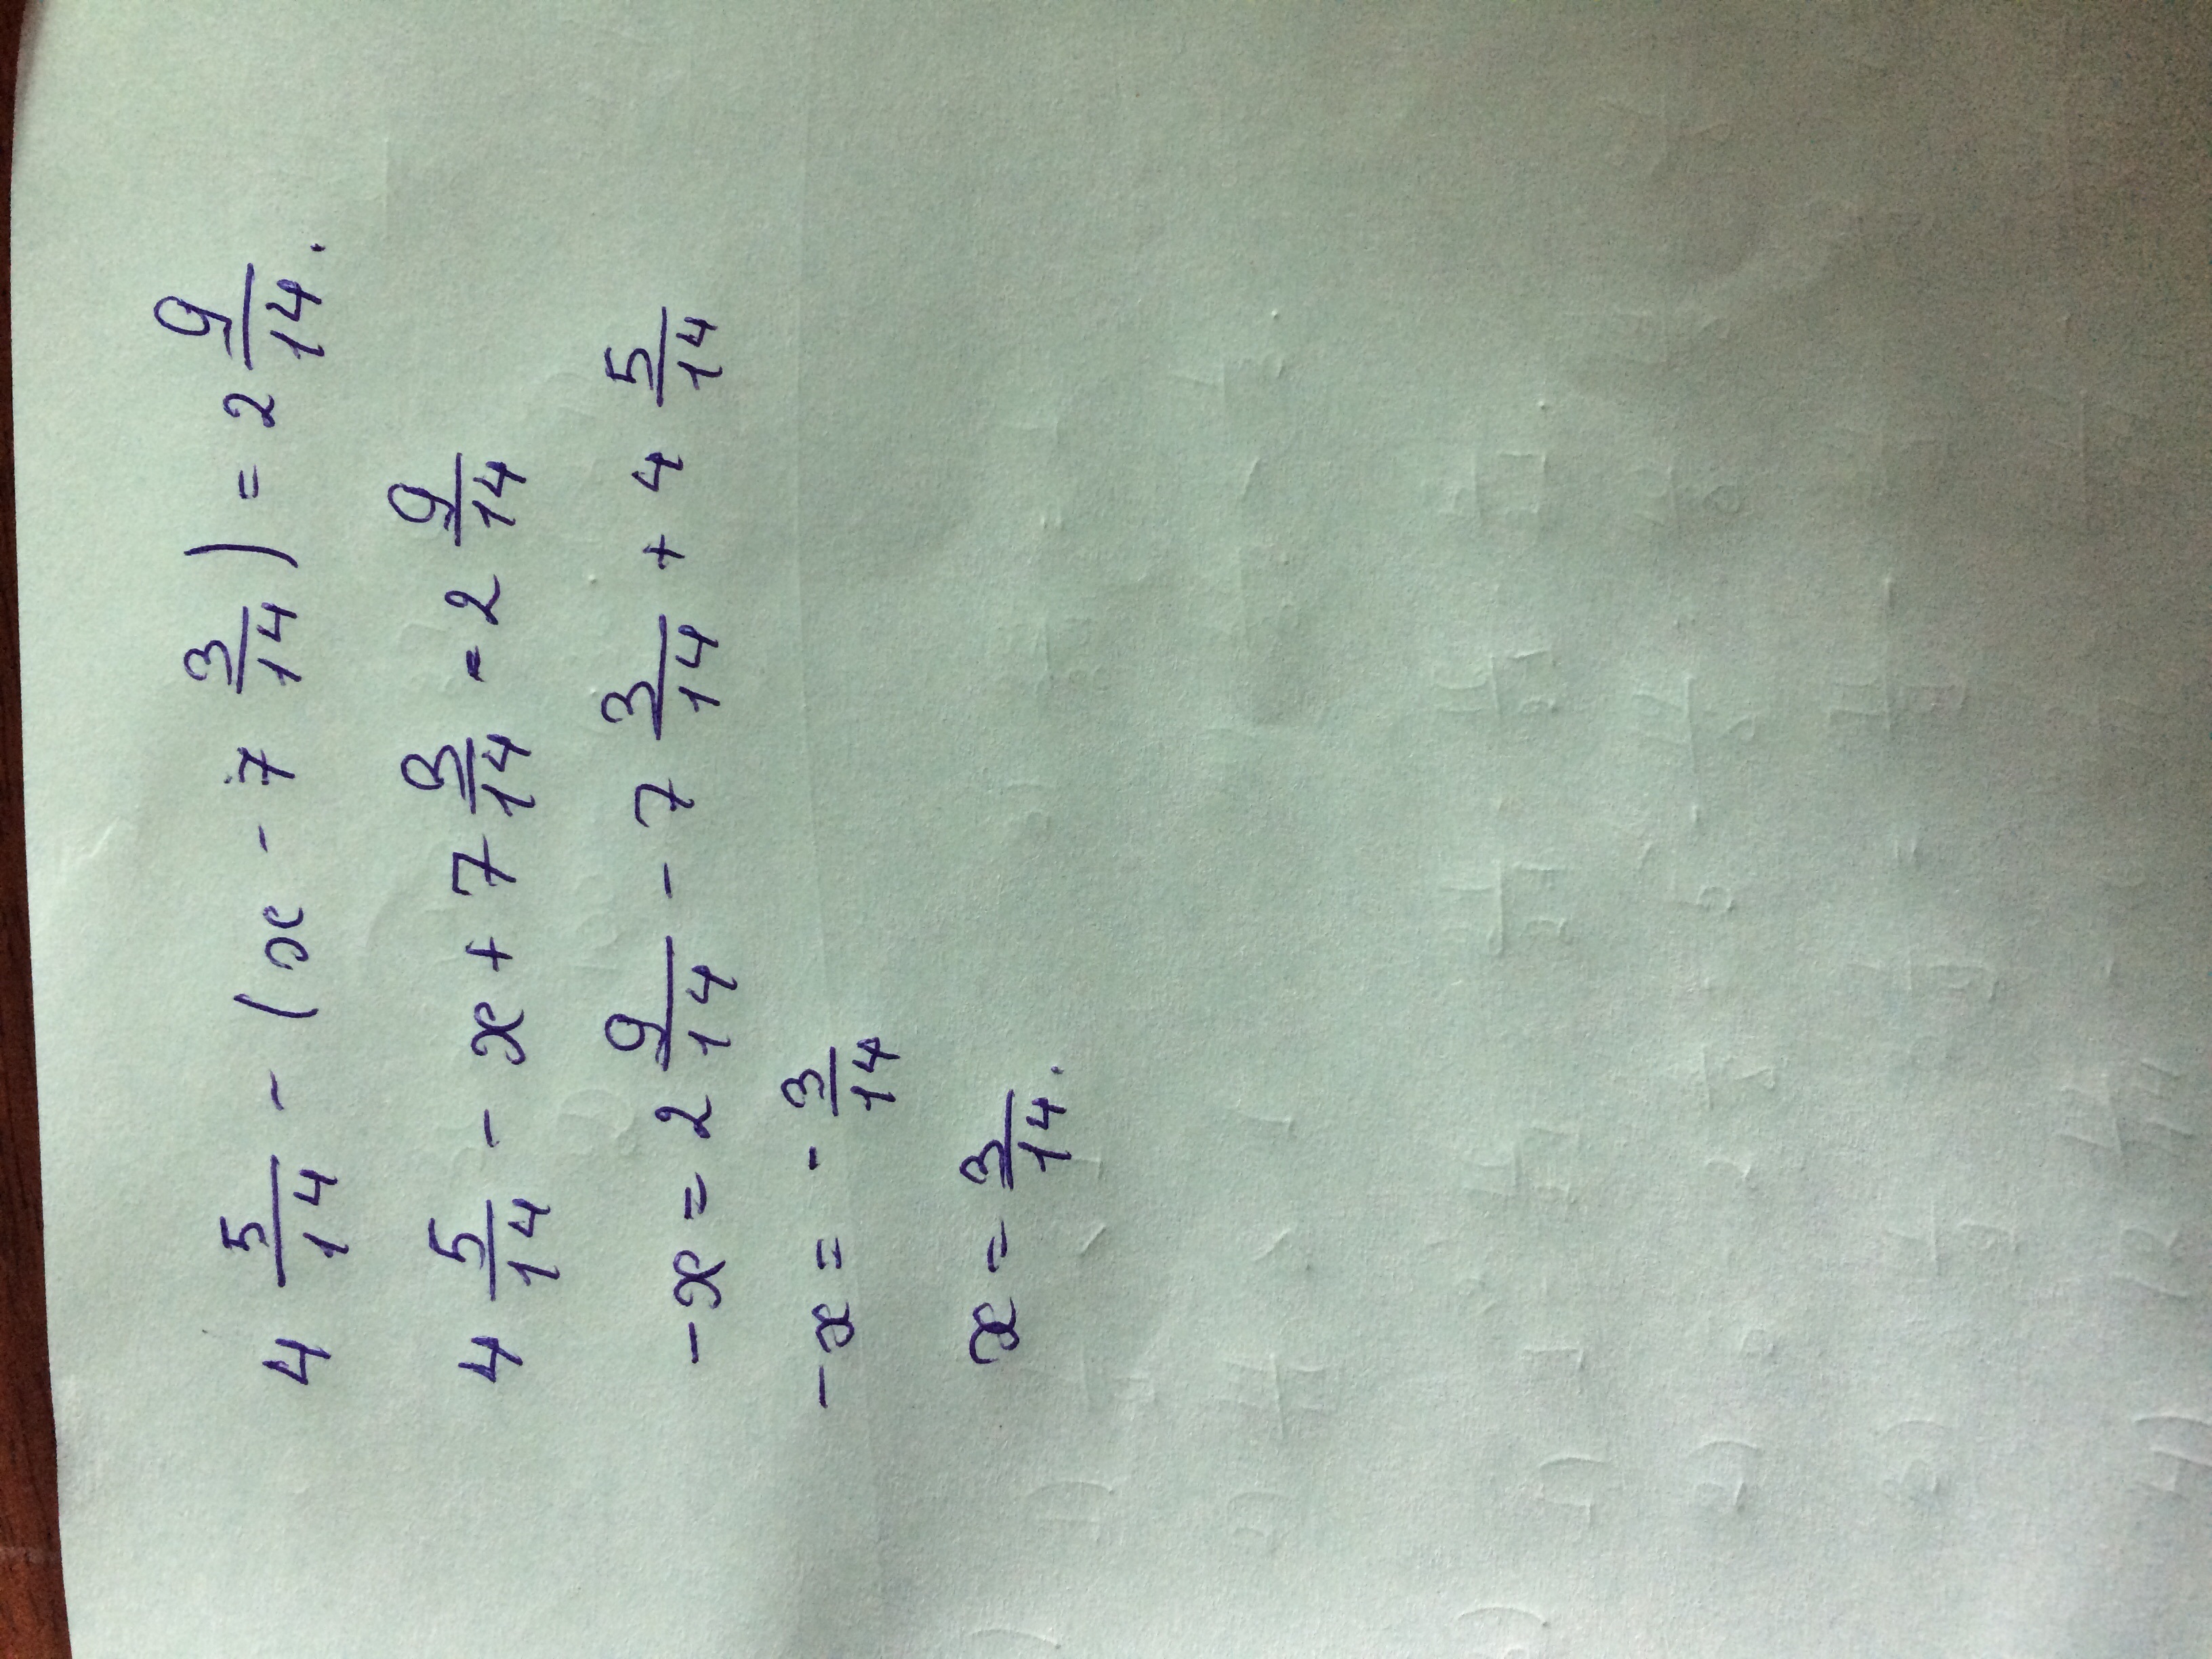 4 5/14 - (x - 7 3/14) = 2 9/14.
4 5/14 - x + 7 3/14 = 2 9/14
-x = 2 9/14 - 7 3/14 + 4 5/14
-x = - 3/14
x = 3/14.